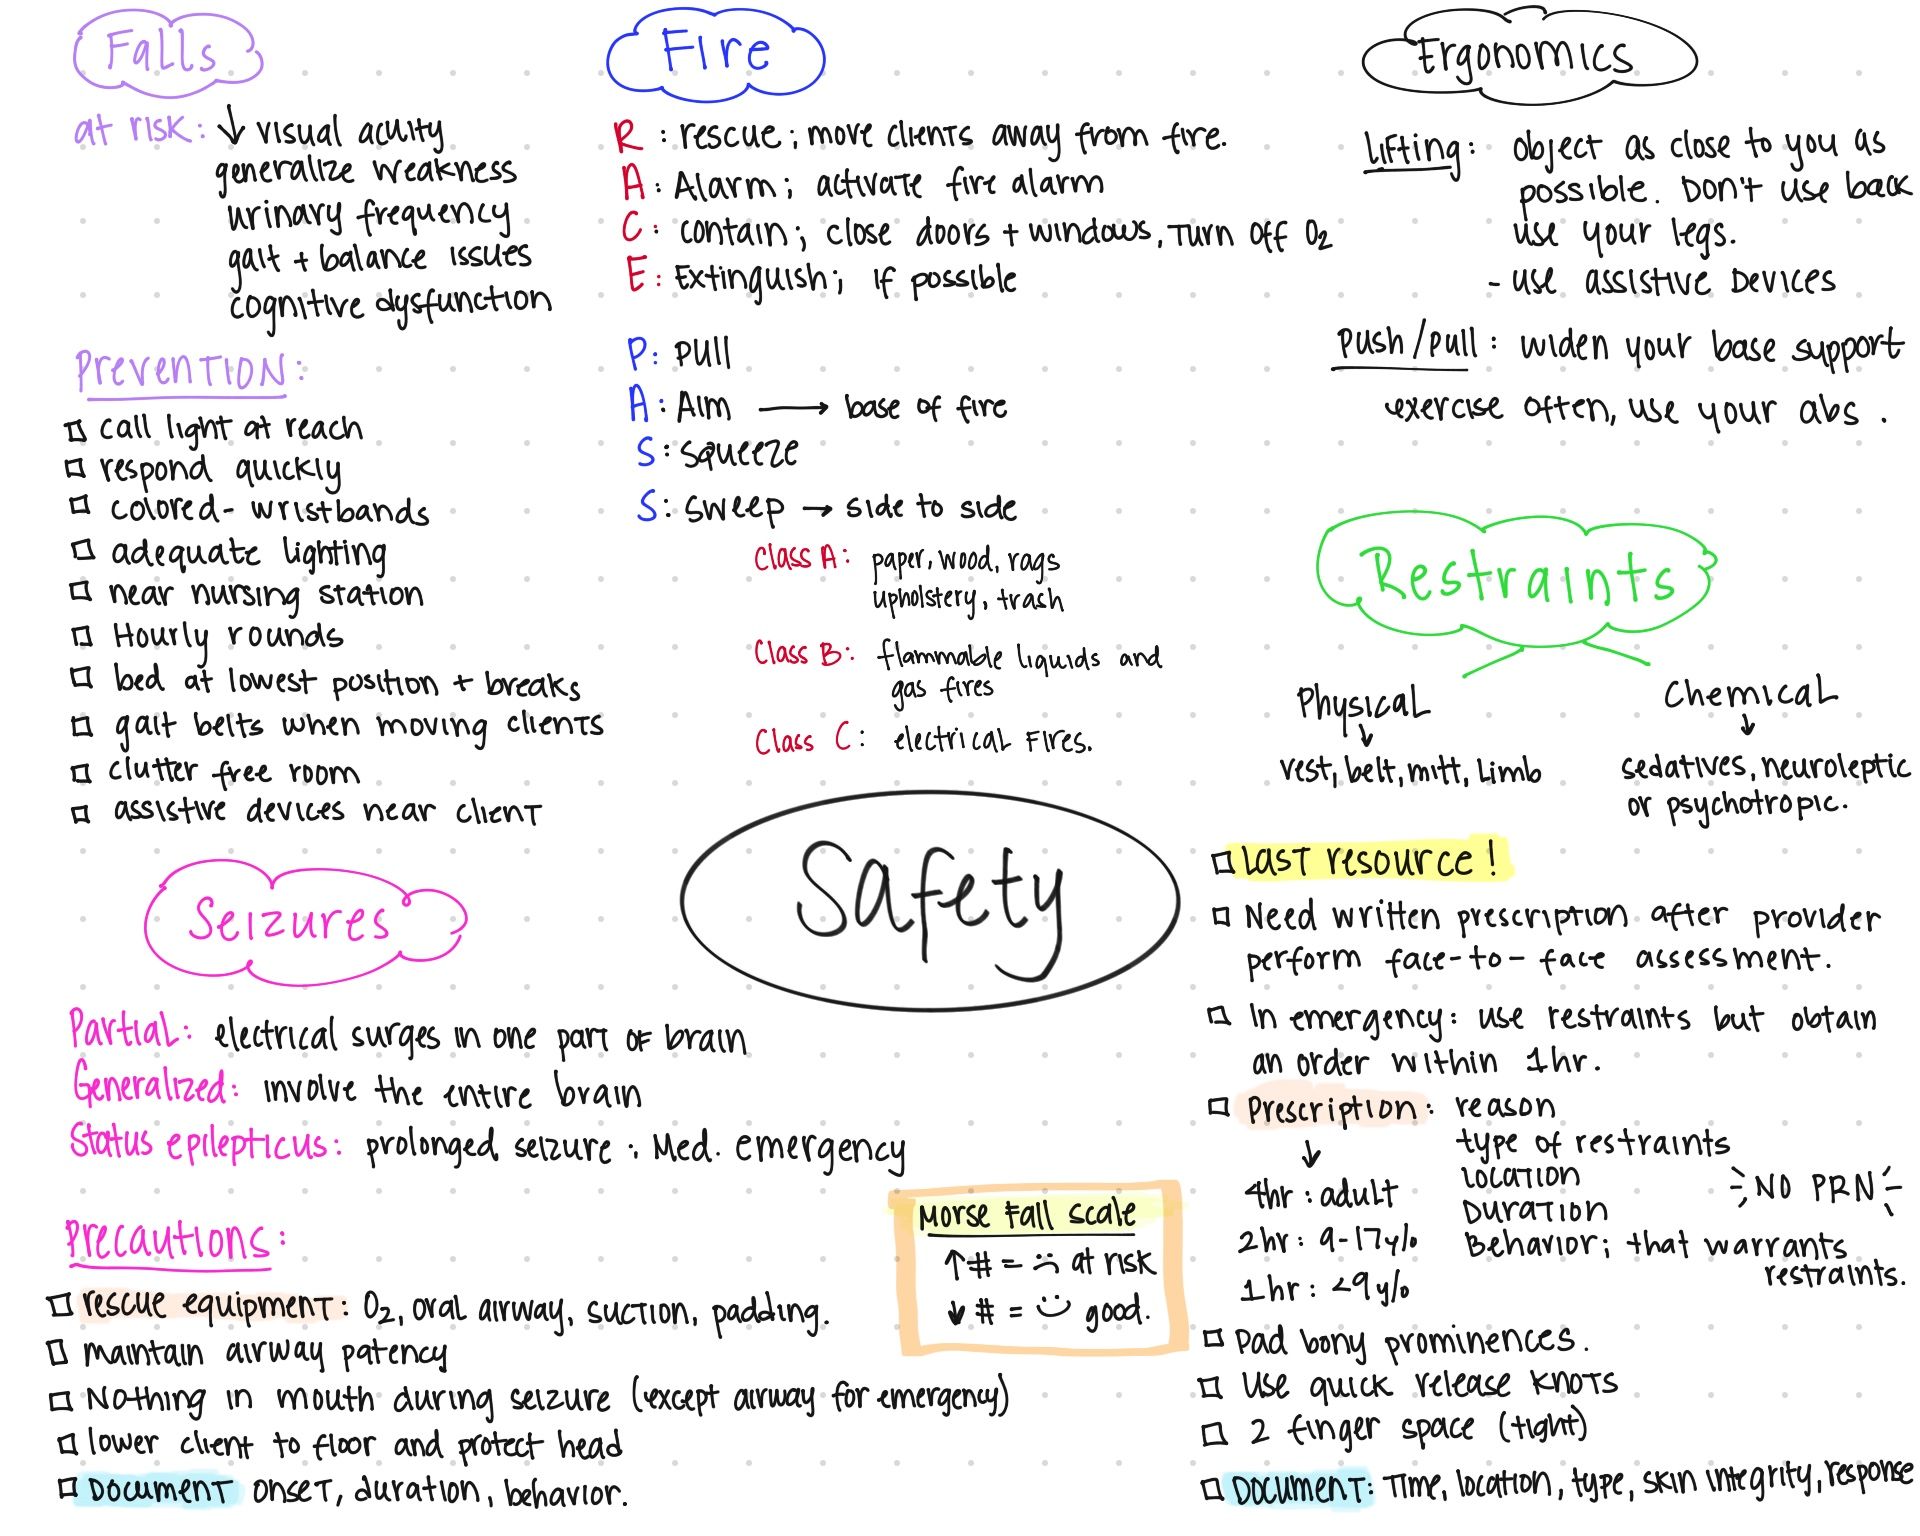 Falls
at risk: ↓ visual acuity
generalize weakness
urinary frequency
gait + balance issues
cognitive dysfunction
Prevention:
□ call light at reach
□ respond quickly
□ colored- wristbands
□ adequate lighting
□ near nursing station
□ Hourly rounds
□ bed at lowest position + breaks
□ gait belts when moving clients
□ clutter free room
□ assistive devices near client
Fire
R : rescue; move clients away from fire.
A : Alarm; activate fire alarm
C : contain; close doors + windows, Turn off O₂
E : Extinguish; if possible
P: pull
A: Aim → base of fire
S: squeeze
S: sweep → side to side
Class A: paper, wood, rags
upholstery, trash
Class B: flammable liquids and
gas fires
Class C: electrical fires.
Ergonomics
Lifting: object as close to you as
possible. Don't use back
use your legs.
- use assistive devices
push/pull: widen your base support
exercise often, use your abs.
Restraints
Physical
↓
vest, belt, mitt, limb
Chemical
↓
sedatives, neuroleptic
or psychotropic.
□ Last resource!
□ Need written prescription after provider
perform face-to-face assessment.
□ In emergency: use restraints but obtain
an order within 1hr.
□ Prescription: reason
type of restraints
location
Duration
Behavior; that warrants
restraints.
NO PRN
↓
4hr: adult
2hr: 9-17 y/o
1hr: <9 y/o
□ Pad bony prominences.
□ Use quick release knots
□ 2 finger space (tight)
□ Document: Time, location, type, skin integrity, response
Safety
Seizures
Partial: electrical surges in one part of brain
Generalized: involve the entire brain
Status epilepticus: prolonged seizure; Med. emergency
Precautions:
□ rescue equipment: O₂, oral airway, suction, padding.
□ maintain airway patency
□ Nothing in mouth during seizure (except airway for emergency)
□ lower client to floor and protect head
□ Document onset, duration, behavior.
Morse Fall scale
↑# = ☹ at risk
↓# = ☺ good.